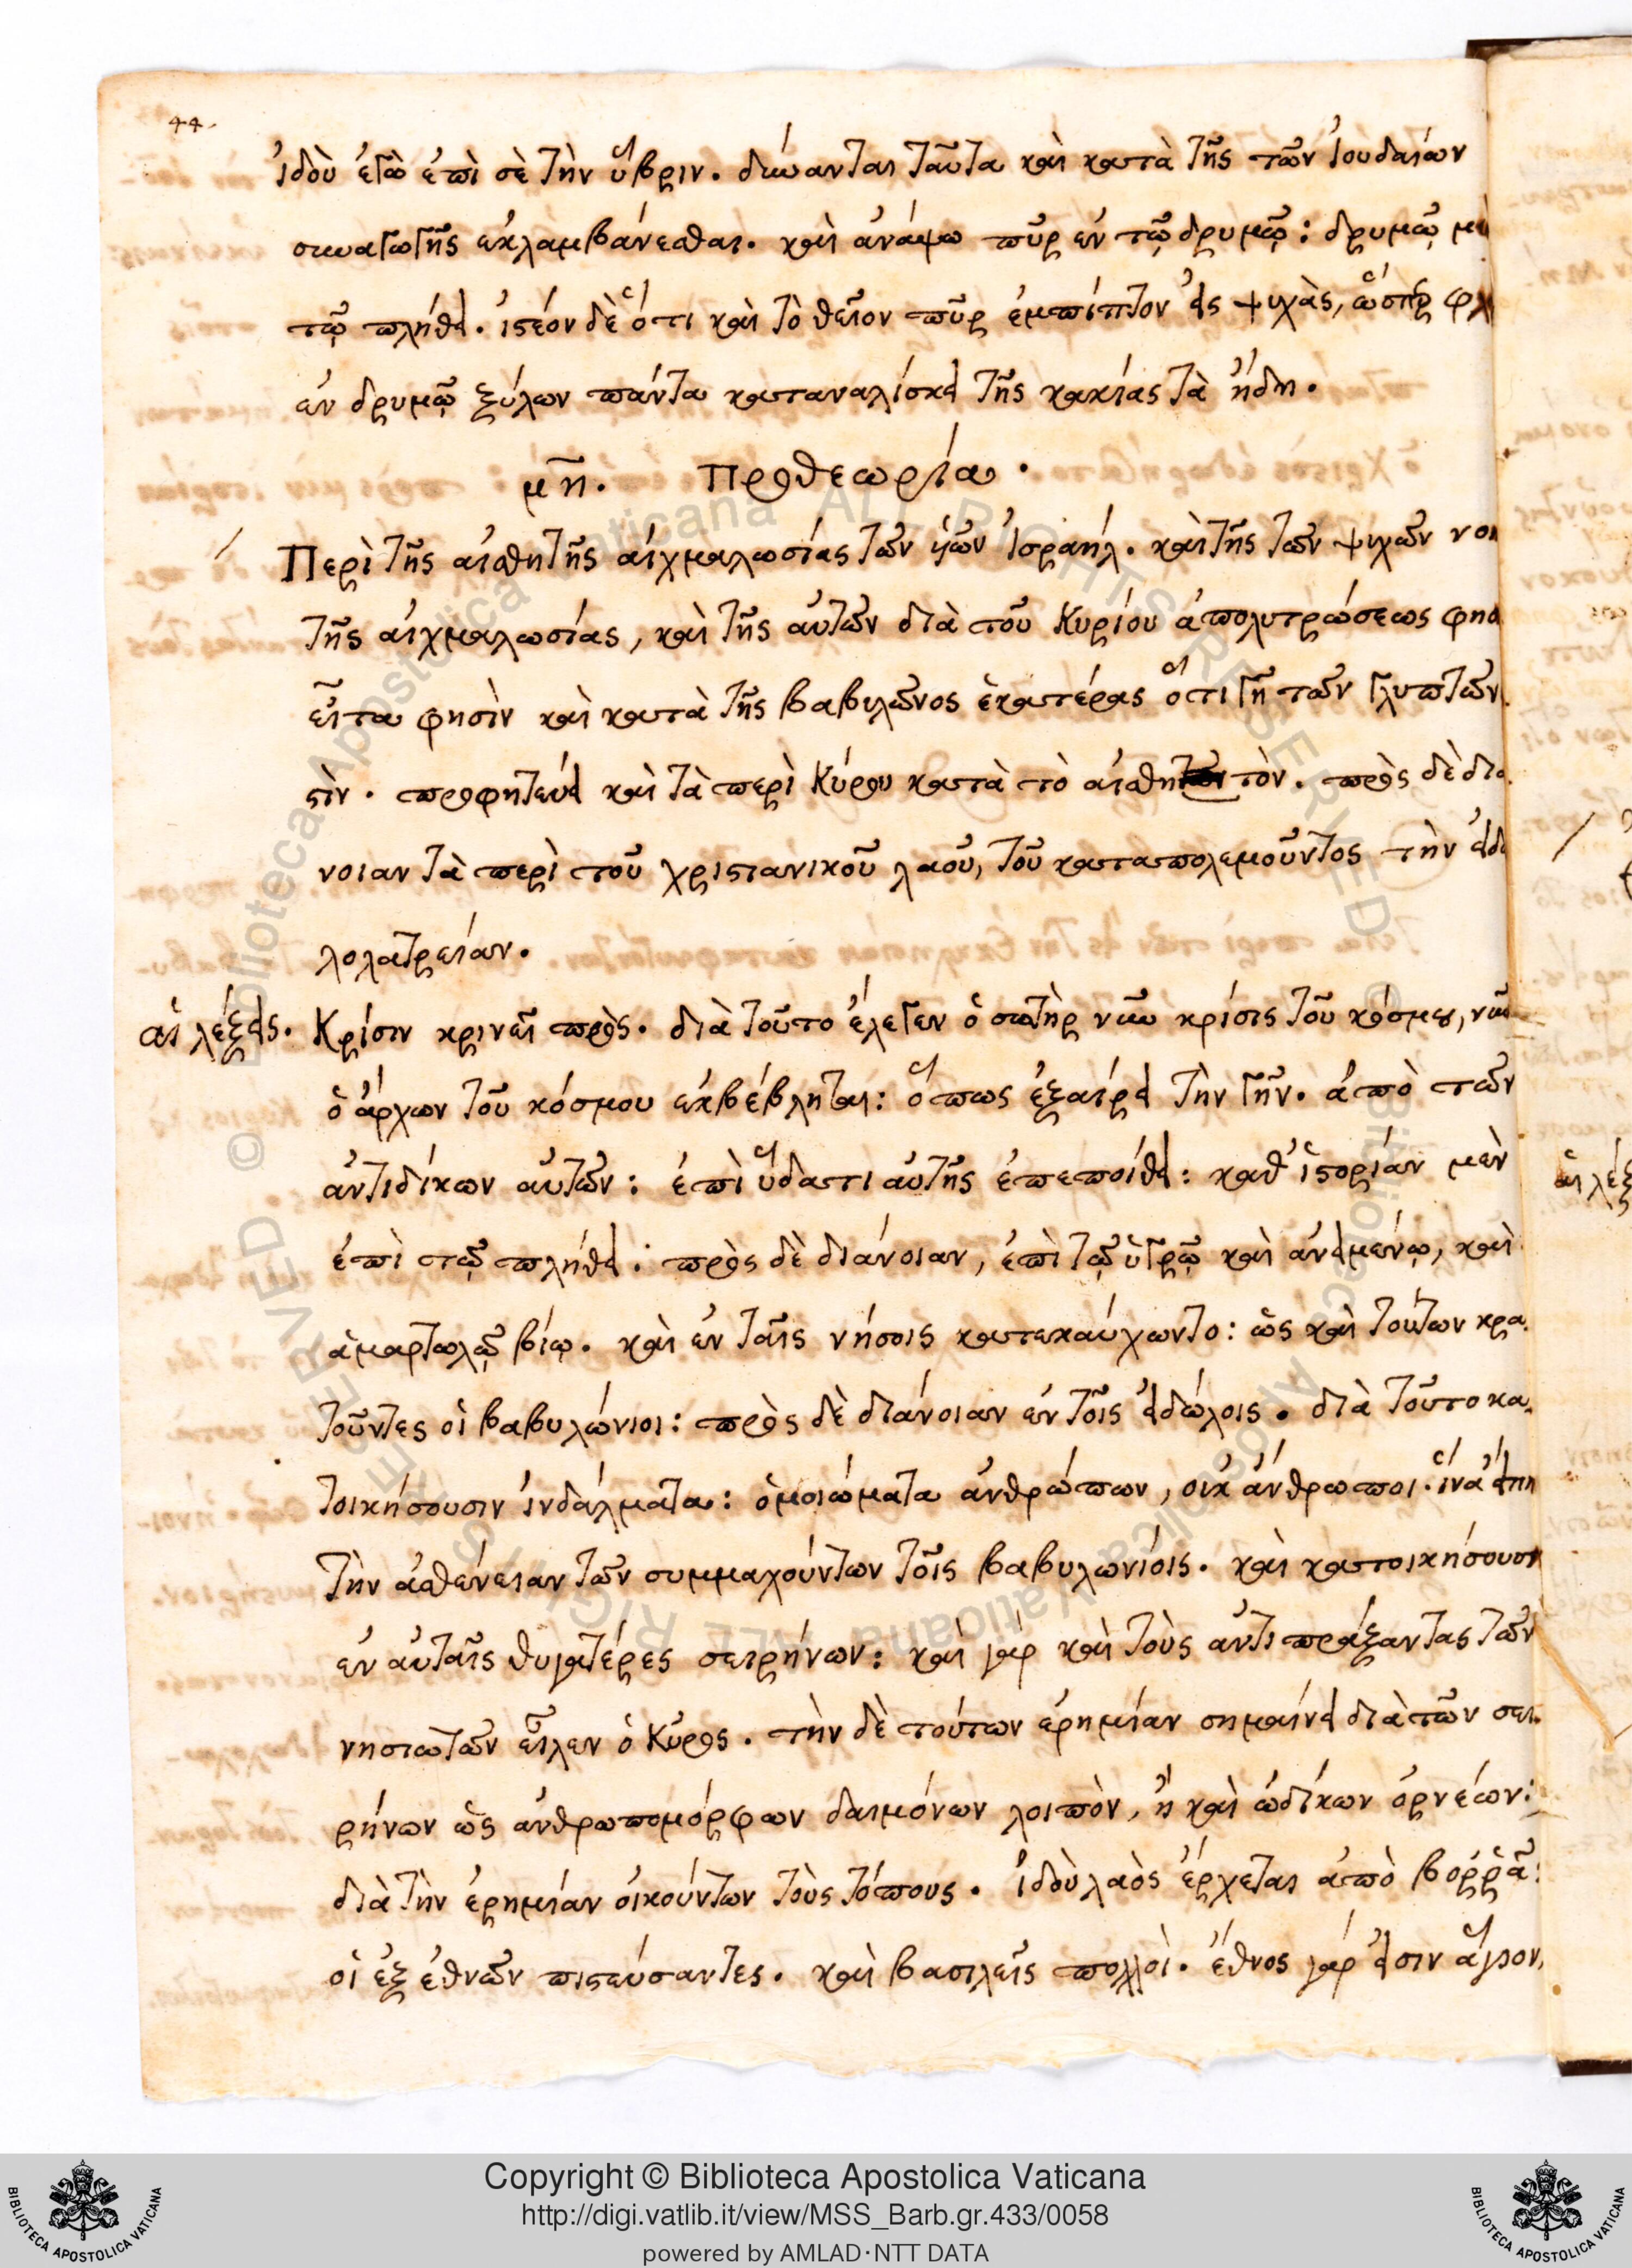 44.
ἰδοὺ ἐγὼ ἐπὶ σὲ τὴν ὕβριν. δύνανται ταῦτα καὶ κατὰ τῆς τῶν Ἰουδαίων
συναγωγῆς ἐκλαμβάνεσθαι. καὶ ἀνάψω πῦρ ἐν τῷ δρυμῷ: δρυμῷ
τῷ πλήθει. ἰστέον δὲ ὅτι καὶ τὸ θεῖον πῦρ ἐμπίπτον εἰς ψυχὰς, ὥσπερ
ἐν δρυμῷ ξύλων πάντα καταναλίσκει τῆς κακίας τὰ ἤδη.
μη. Προθεωρία.
Περὶ τῆς αἰσθητῆς αἰχμαλωσίας τῶν ὑῶν Ἰσραήλ. καὶ τῆς τῶν ψυχῶν νοη
τῆς αἰχμαλωσίας, καὶ τῆς αὐτῶν διὰ τοῦ Κυρίου ἀπολυτρώσεως
εἶτα φησὶν καὶ κατὰ τῆς βαβυλῶνος ἑκατέρας ὅτι γῆ τῶν γλυπτῶν
στὶν. προφητεύει καὶ τὰ περὶ Κύρου κατὰ τὸ αἰσθητὸν. πρὸς δὲ διά
νοιαν τὰ περὶ τοῦ χριστιανικοῦ λαοῦ, τοῦ καταπολεμοῦντος τὴν εἰδω
λολατρείαν.
αἱ λέξεις. Κρίσιν κρινεῖ πρὸς. διὰ τοῦτο ἔλεγεν ὁ σωτὴρ νῦν κρίσις τοῦ κόσμου, νῦν
ὁ ἄρχων τοῦ κόσμου ἐκβέβληται: ὅπως ἐξαίρει τὴν γῆν. ἀπὸ τῶν
ἀντιδίκων αὐτῶν: ἐπὶ ὕδατι αὐτῆς ἐπεποίθει: καθ' ἱστορίαν μὲν
ἐπὶ τῷ πλήθει: πρὸς δὲ διάνοιαν, ἐπὶ τῷ ὑγρῷ καὶ ἀνειμένῳ, καὶ
ἁμαρτωλῷ βίῳ. καὶ ἐν ταῖς νήσοις κατεκαύχωντο: ὡς καὶ τούτων κρα
τοῦντες οἱ βαβυλώνιοι: πρὸς δὲ διάνοιαν ἐν τοῖς εἰδώλοις. διὰ τοῦτο κα
τοικήσουσιν ἰνδάλματα: ὁμοιώματα ἀνθρώπων, οὐκ ἄνθρωποι. ἵνα εἴπη
τὴν ἀσθένειαν τῶν συμμαχούντων τοῖς βαβυλωνίοις. καὶ κατοικήσουσιν
ἐν αὐταῖς θυγατέρες σειρήνων: καὶ γὰρ καὶ τοὺς ἀντιπράξαντας τῶν
νησιωτῶν εἷλεν ὁ Κῦρος. τὴν δὲ τούτων ἐρημίαν σημαίνει διὰ τῶν σει
ρήνων ὡς ἀνθρωπομόρφων δαιμόνων λοιπὸν, ἢ καὶ ὠδίκων ὀρνέων:
διὰ τὴν ἐρημίαν οἰκούντων τοὺς τόπους. ἰδοὺ λαὸς ἔρχεται ἀπὸ βορρᾶ:
οἱ ἐξ ἐθνῶν πιστεύσαντες. καὶ βασιλεῖς πολλοὶ. ἔθνος γάρ εἰσιν ἅγιον,
αἱ λέξ
Copyright © Biblioteca Apostolica Vaticana
http://digi.vatlib.it/view/MSS_Barb.gr.433/0058
powered by AMLAD·NTT DATA
BIBLIOTECA APOSTOLICA VATICANA
BIBLIOTECA APOSTOLICA VATICANA